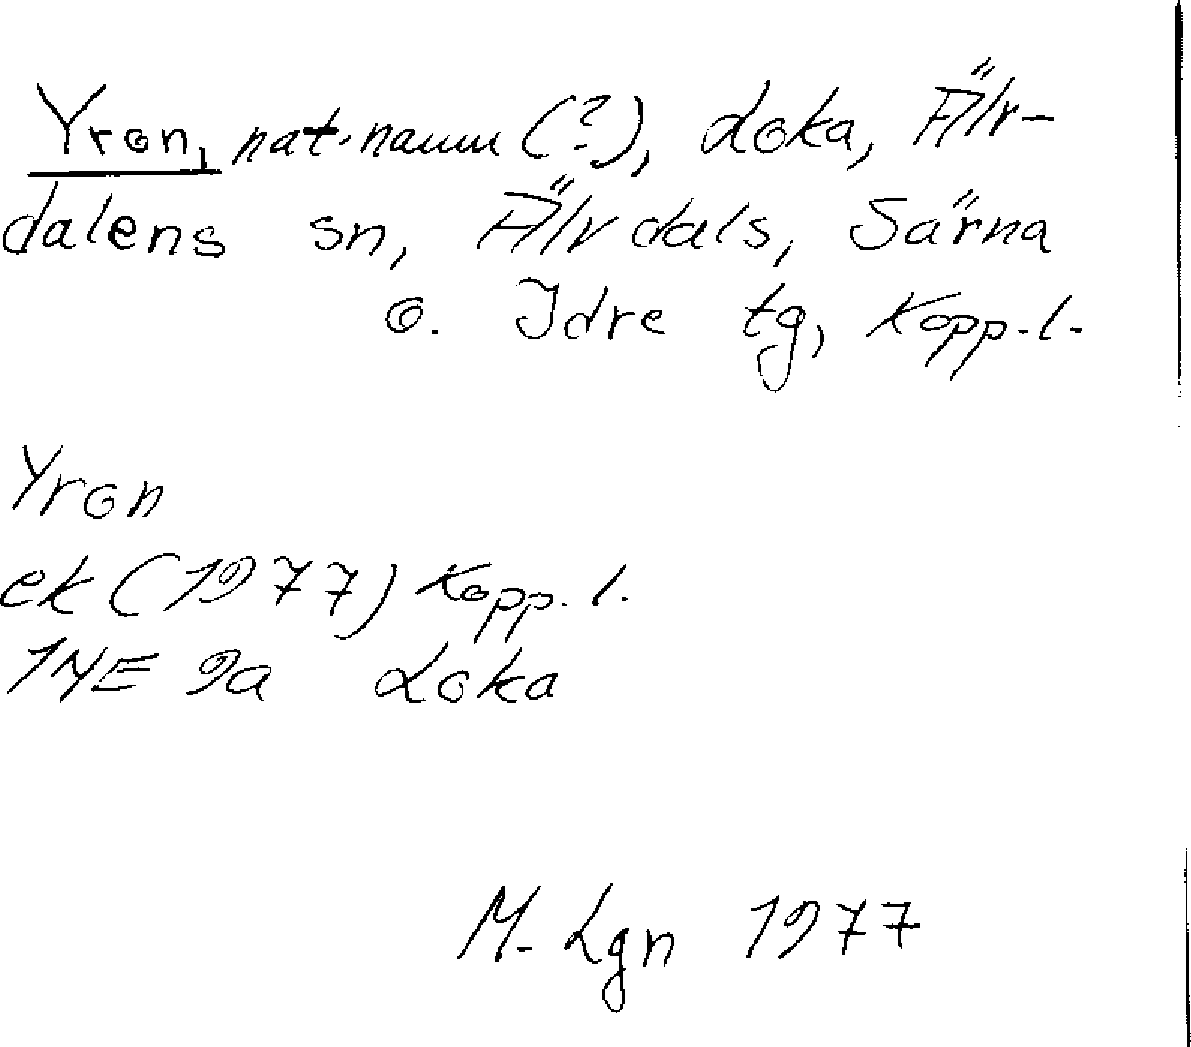 Yron, nat.namn (?), Loka, Älv-
dalens sn, Älvdals, Särna
o. Idre tg, Kopp. l.
Yron
ek (1977) Kopp. l.
14E 9a Loka
M. Lgn 1977